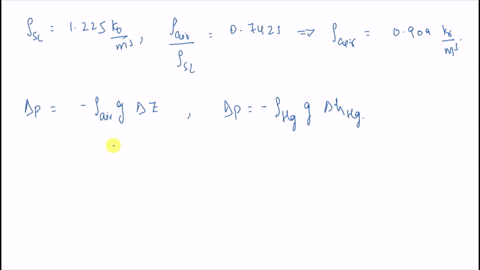 ρ_SL = 1.225 kg/m³, ρ_air/ρ_SL = 0.7423 ⇒ ρ_air = 0.909 kg/m³.
Δp = -ρ_air g ΔZ , Δp = -ρ_Hg g Δh_Hg.